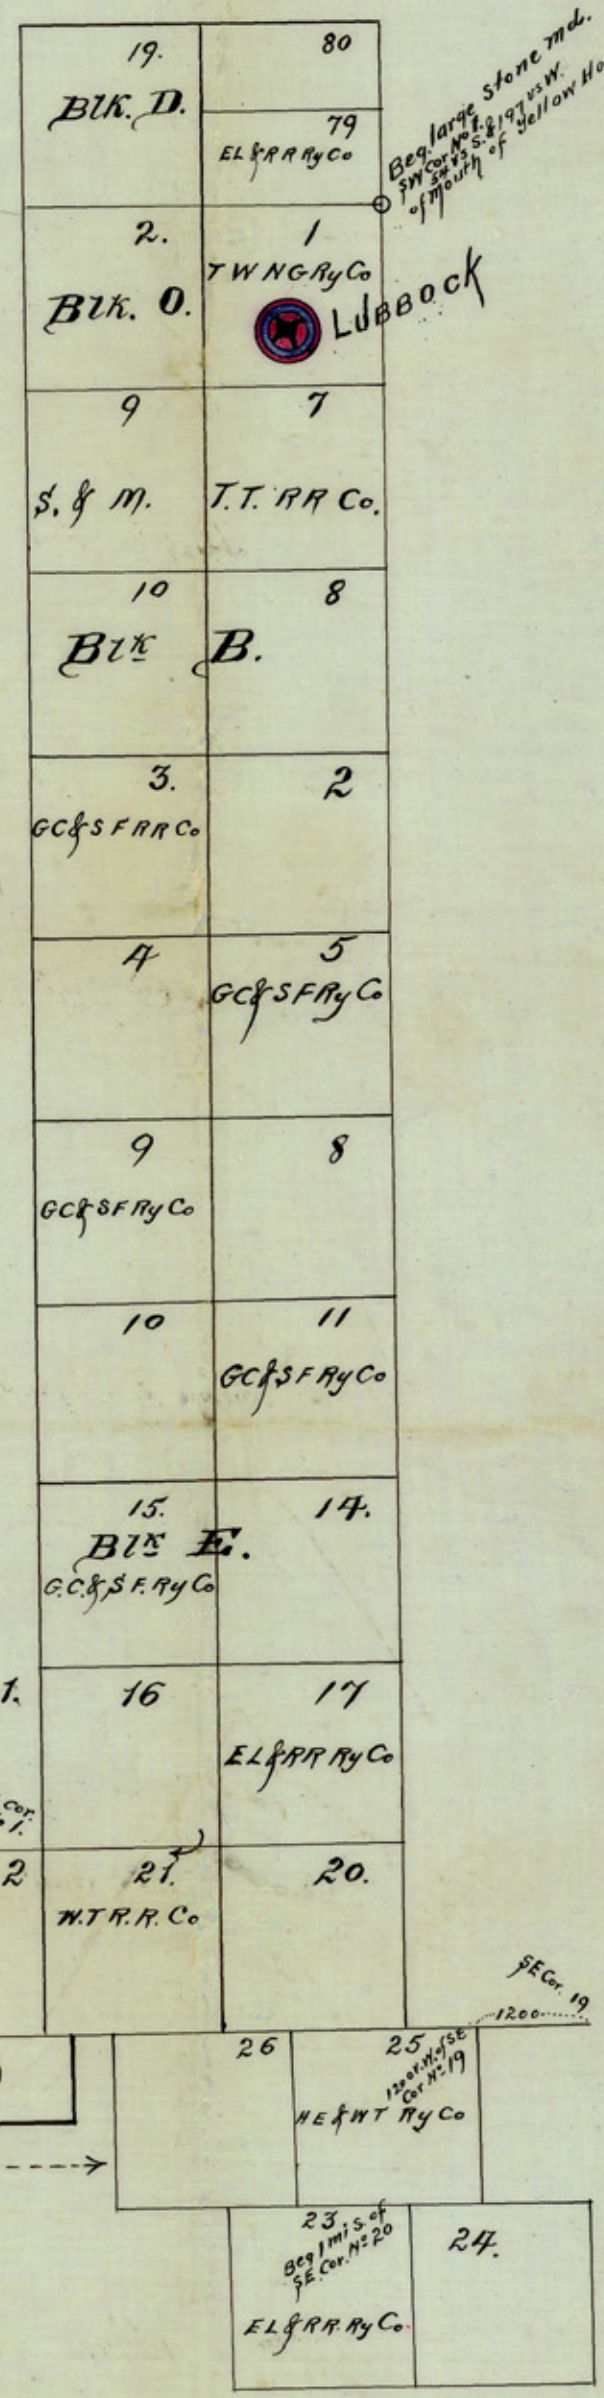 19.
80
Blk. D.
79
EL&RRRyCo
Beg. large stone md.
SW Cor. No 1.
of mouth of Yellow Ho
2.
1
TWNGRyCo
Blk. O.
LUBBOCK
9
7
S. & M.
T.T. RR Co.
10
8
Blk B.
3.
2
GC&SFRRCo
4
5
GC&SFRyCo
9
8
GC&SFRyCo
10
11
GC&SFRyCo
15.
14.
Blk E.
G.C.&S.F.RyCo
1.
16
17
EL&RR RyCo
cor.
1.
2
21.
20.
W.T R.R. Co
SE Cor. 19
1200
26
25
1200 v. W. of SE
Cor No 19
HE&WT RyCo
23
Beg 1 mi S. of
SE. Cor. No 20
24.
EL&RR.RyCo.